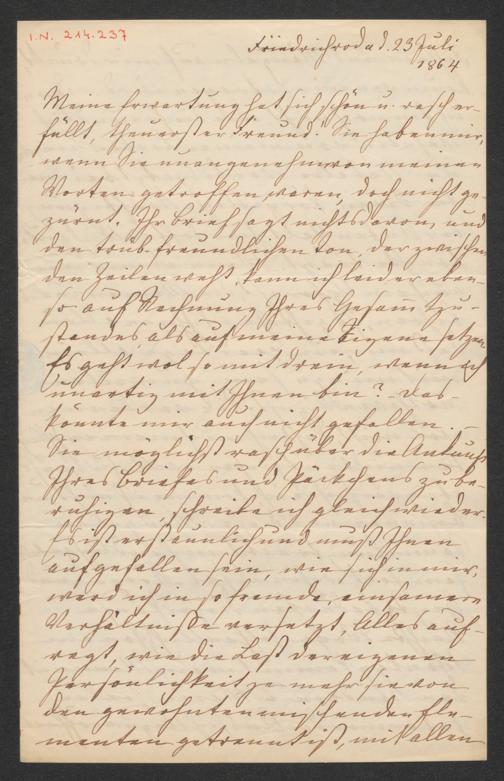 I.N. 214.237
Friedrichroda d. 23 Juli
1864
Meine Erwartung hat sich schön u. rasch er-
füllt, theuerster Freund. Sie haben mir,
wenn Sie unangenehm von meinen
Worten getroffen waren, doch nicht ge-
zürnt. Ihr Brief sagt nichts davon, und
den trüb freundlichen Ton, der zwischen
den Zeilen weht, kann ich leider eben-
so auf Rechnung Ihres Gesammtzu-
standes als auf meine Eigene setzen.
Es geht wol so mit drein, wenn ich
unartig mit Ihnen bin? Das
könnte mir auch nicht gefallen. –
Sie möglichst rasch über die Ankunft
Ihres Briefes und Päckchens zu be-
ruhigen, schreibe ich gleich wieder.
Es ist erstaunlich und muß Ihnen
aufgefallen sein, wie sich in mir,
werd ich in so fremde, einsamere
Verhältniße versetzt, Alles auf-
regt, wie die Last der eigenen
Persönlichkeit je mehr sie von
den gewohnten mischenden Ele-
menten getrennt ist, mit allen